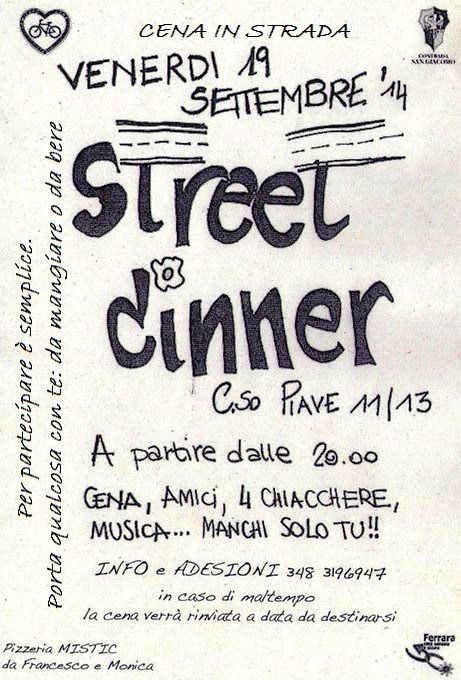 CENA IN STRADA
CONTRADA
SAN GIACOMO
VENERDI 19
SETTEMBRE '14
street
dinner
C.so PIAVE 11/13
A partire dalle 20.00
CENA, AMICI, 4 CHIACCHERE,
MUSICA... MANCHI SOLO TU!!
INFO e ADESIONI 348 3196947
in caso di maltempo
la cena verrà rinviata a data da destinarsi
Per partecipare è semplice.
Porta qualcosa con te: da mangiare o da bere
Pizzeria MISTIC
da Francesco e Monica
Ferrara